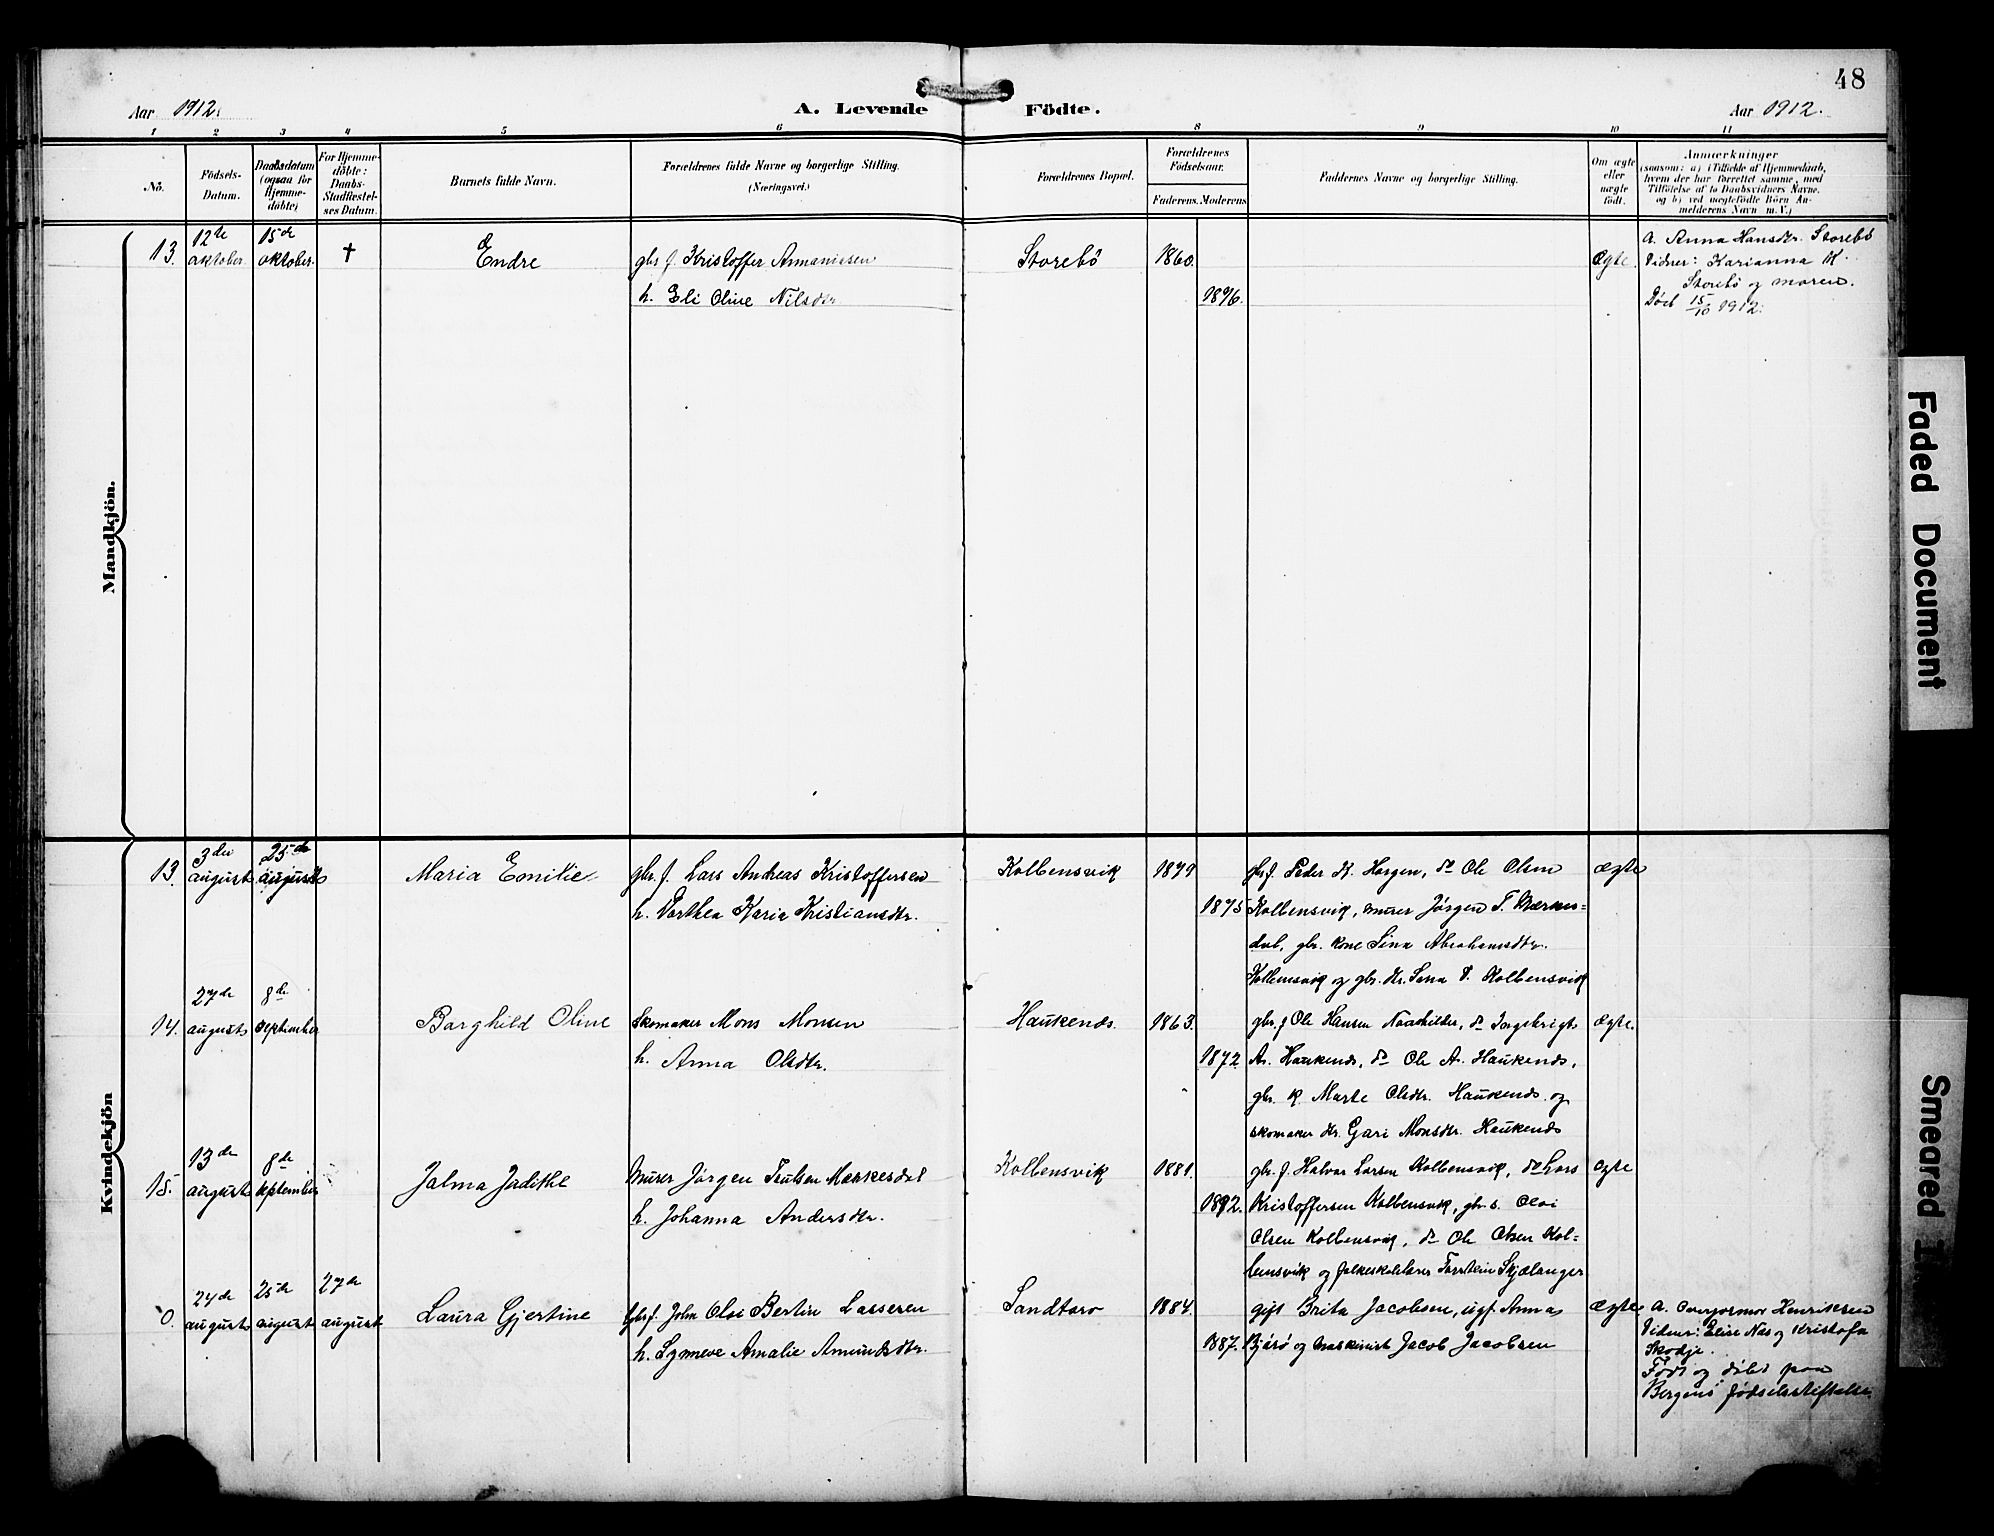 48
Aar 1912.
A. Levende Födte.
Aar 1912.
1 2 3 4 5 6 8 9 10 11
No.
Födsels-
Datum.
Daabsdatum
(ogsaa for
Hjemme-
döbte)
For Hjemme-
döbte:
Daabs-
Stadfæstel-
ses Datum.
Barnets fulde Navn.
Forældrenes fulde Navne og borgerlige Stilling.
(Næringsvei.)
Forældrenes Bopæl.
Forældrenes
Födselsaar.
Faderens. Moderens
Faddernes Navne og borgerlige Stilling.
Om ægte
eller
uægte
födt.
Anmærkninger
(saasom: a) i Tilfælde af Hjemmedaab,
hvem der har forrettet samme, med
Tilföielse af to Daabsvidners Navne.
og b) ved uægtefödte Börn An-
melderens Navn m. V.)
Mandkjön.
13.
12te
oktober
15de
oktober.
†
Endre
gbr f. Kristoffer Annaniasen
h. Eli Oline Nilsdtr
Storebö
1860.
1876.
Ægte.
a. Anna Hansdtr. Storebö
Vidner: Karianna K.
Storebö og moren.
Död 15/10 1912.
Kvindekjön
13.
3die
august
25de
august
Maria Emilie
gbr. f. Lars Andreas Kristoffersen
h. Dorthea Karia Kristiansdtr.
Kolbensvik
1879
1875
gbr f. Peder K. Horgen, do Ole Olsen
Kolbensvik, murer Jørgen T.
dal, gbr. kone Sina Abrahamsdtr.
Kolbensvik og gbr. dtr. Kolbensvik
ægte
14.
27de
august
8de
september
Borghild Oline
Skomaker Mons Monsen
h. Anna Olsdtr.
Haukenæs.
1863.
1872
gbr. f Ole Hansen do Ingebrigt
A. Haukenæs, do Ole A. Haukenæs,
gbr. k Marte Olsdtr. Haukenæs og
skomaker dtr. Gari Monsdtr. Haukenæs
ægte.
15.
13de
august
8de
september
Jalma Jadithe
Murer Jørgen
h. Johanna Andersdtr.
Kolbensvik
1881.
1882.
gbr. f. Halvar Larsen Kolbensvik, do Lars
Kristoffersen Kolbensvik, gbr. s. Olai
Olsen Kolbensvik, do Ole Olsen Kol-
bensvik og folkeskolelærer Torstein Skjælanger
ægte
0.
24de
august
25de
august
27de
august
Laura Gjertine
Gbr f. John Olai Bertin Lassesen
h. Synneve Amalie Amundsdtr.
Sandtorv
1884.
1887.
gift Brita Jacobsen, ugf. Anna
og maskinist Jacob Jacobsen
ægte
a. Overjormor Henriksen
Vidner: Elise Næs og Kristofa
Skodje.
Födt og döbt paa
Bergens fødselsstiftelse.
Faded Document
Smeared